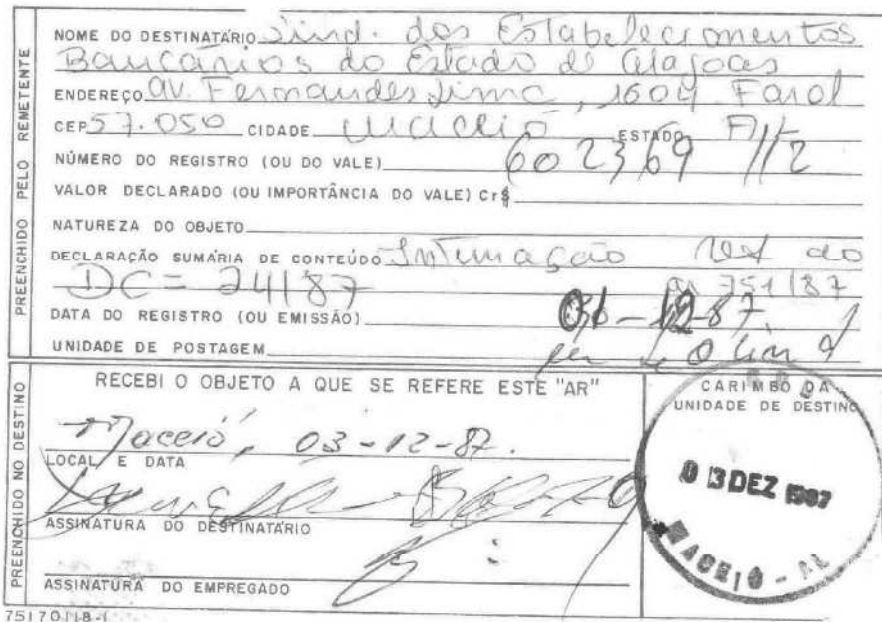 PREENCHIDO PELO REMETENTE
NOME DO DESTINATÁRIO Sind. dos Estabelecimentos
Bancários do Estado de Alagoas
ENDEREÇO Av. Fernandes Lima, 1604 Farol
CEP 57.050 CIDADE Maceió ESTADO Al
NÚMERO DO REGISTRO (OU DO VALE) 602369
VALOR DECLARADO (OU IMPORTÂNCIA DO VALE) Cr$
NATUREZA DO OBJETO
DECLARAÇÃO SUMÁRIA DE CONTEÚDO Intimação ao
DC = 24187 751/87
DATA DO REGISTRO (OU EMISSÃO) 01-12-87
UNIDADE DE POSTAGEM
PREENCHIDO NO DESTINO
RECEBI O OBJETO A QUE SE REFERE ESTE "AR"
Maceió, 03-12-87.
LOCAL E DATA
ASSINATURA DO DESTINATÁRIO
ASSINATURA DO EMPREGADO
CARIMBO DA
UNIDADE DE DESTINO
03 DEZ 1987
MACEIÓ - AL
75170118-1